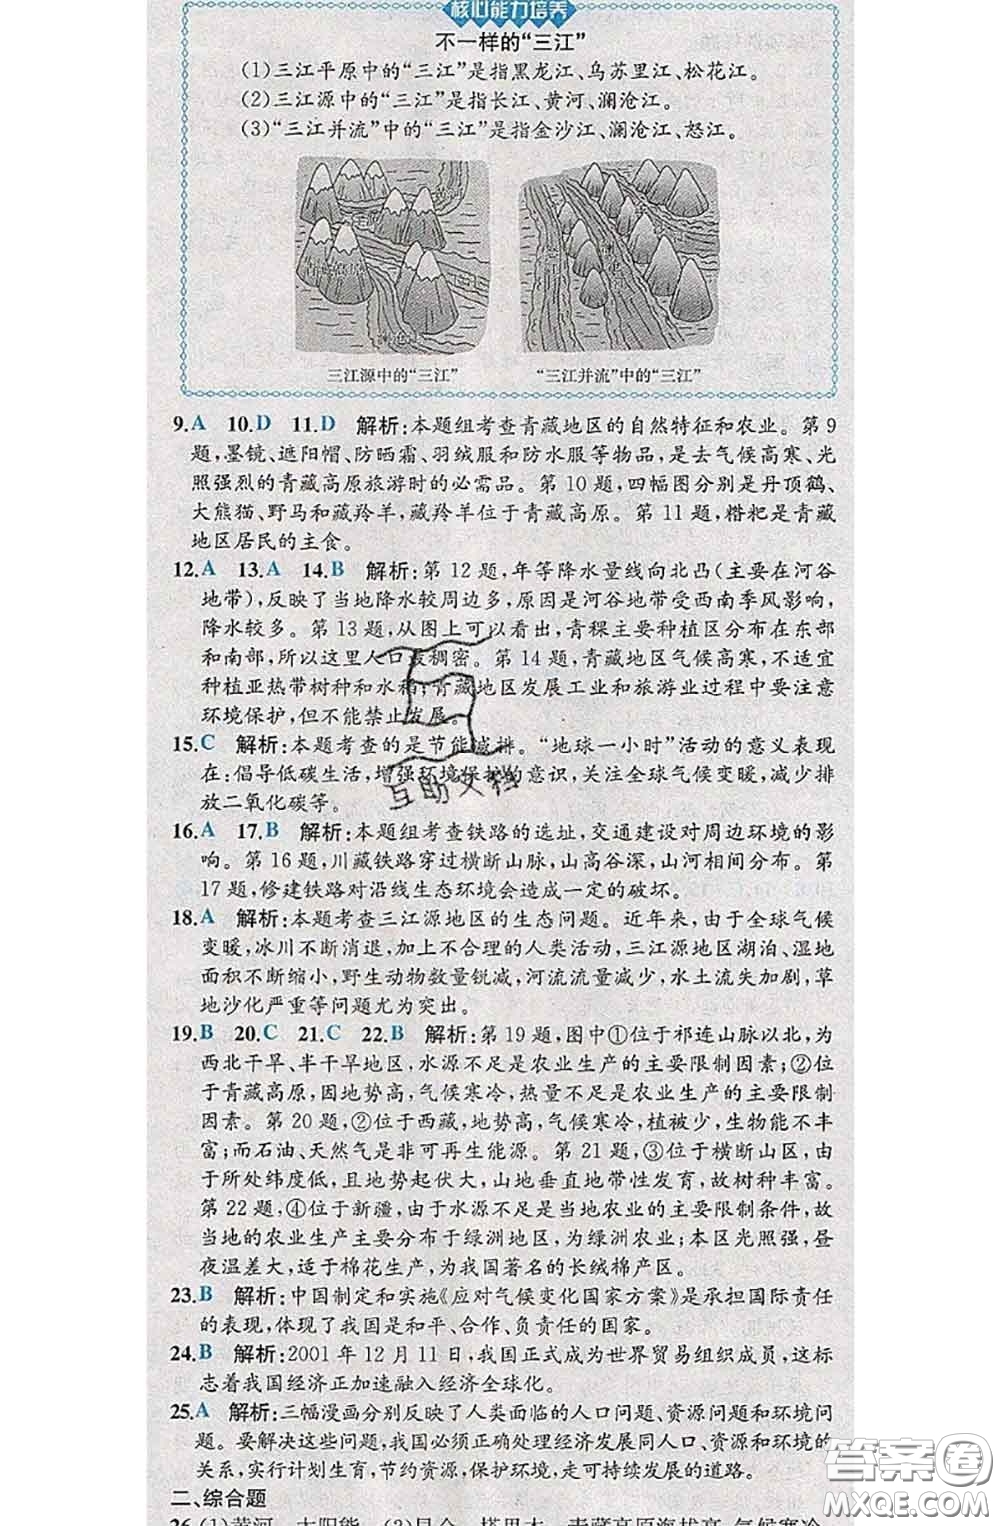 核心能力培养
不一样的“三江”
(1)三江平原中的“三江”是指黑龙江、乌苏里江、松花江。
(2)三江源中的“三江”是指长江、黄河、澜沧江。
(3)“三江并流”中的“三江”是指金沙江、澜沧江、怒江。
三江源中的“三江” “三江并流”中的“三江”
9.A 10.D 11.D 解析:本题组考查青藏地区的自然特征和农业。第 9
题,墨镜、遮阳帽、防晒霜、羽绒服和防水服等物品,是去气候高寒、光
照强烈的青藏高原旅游时的必需品。第 10 题,四幅图分别是丹顶鹤、
大熊猫、野马和藏羚羊,藏羚羊位于青藏高原。第 11 题,糌粑是青藏
地区居民的主食。
12.A 13.A 14.B 解析:第 12 题,年等降水量线向北凸(主要在河谷
地带),反映了当地降水较周边多,原因是河谷地带受西南季风影响,
降水较多。第 13 题,从图上可以看出,青稞主要种植区分布在东部
和南部,所以这里人口最稠密。第 14 题,青藏地区气候高寒,不适宜
种植亚热带树种和水稻;青藏地区发展工业和旅游业过程中要注意
环境保护,但不能禁止发展。
15.C 解析:本题考查的是节能减排。“地球一小时”活动的意义表现
在:倡导低碳生活,增强环境保护的意识,关注全球气候变暖,减少排
放二氧化碳等。
互助文档
16.A 17.B 解析:本题组考查铁路的选址,交通建设对周边环境的影
响。第 16 题,川藏铁路穿过横断山脉,山高谷深,山河相间分布。第
17 题,修建铁路对沿线生态环境会造成一定的破坏。
18.A 解析:本题考查三江源地区的生态问题。近年来,由于全球气候
变暖,冰川不断消退,加上不合理的人类活动,三江源地区湖泊、湿地
面积不断缩小,野生动物数量锐减,河流流量减少,水土流失加剧,草
地沙化严重等问题尤为突出。
19.B 20.C 21.C 22.B 解析:第 19 题,图中①位于祁连山脉以北,为
西北干旱、半干旱地区,水源不足是农业生产的主要限制因素;②位
于青藏高原,因地势高,气候寒冷,热量不足是农业生产的主要限制
因素。第 20 题,②位于西藏,地势高,气候寒冷,植被少,生物能不丰
富;而石油、天然气是非可再生能源。第 21 题,③位于横断山区,由
于所处纬度低,且地势起伏大,山地垂直地带性发育,故树种丰富。
第 22 题,④位于新疆,由于水源不足是当地农业的主要限制条件,故
当地的农业生产主要分布于绿洲地区,为绿洲农业;本区光照强,昼
夜温差大,适于棉花生产,为我国著名的长绒棉产区。
23.B 解析:中国制定和实施《应对气候变化国家方案》是承担国际责任
的表现,体现了我国是和平、合作、负责任的国家。
24.B 解析:2001 年 12 月 11 日,我国正式成为世界贸易组织成员,这标
志着我国经济正加速融入经济全球化。
25.A 解析:三幅漫画分别反映了人类面临的人口问题、资源问题和环境问
题。要解决这些问题,我国必须正确处理经济发展同人口、资源和环境的
关系,实行计划生育,节约资源,保护环境,走可持续发展的道路。
二、综合题
26.(1)黄河 太阳能 (2)昆仑 塔里木 青藏高原海拔高,气候寒冷
答案圈
MXQE.COM